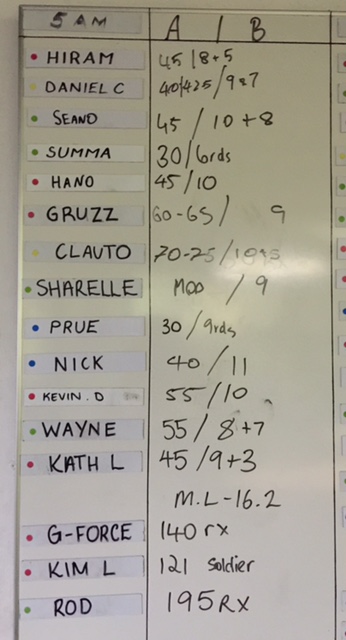 5 AM A / B
HIRAM 45 / 8+5
DANIEL C 40/42.5 / 9+7
SEANO 45 / 10 + 8
SUMMA 30/6rds
HANO 45/10
GRUZZ 60-65/ 9
CLAUTO 70-75/
SHARELLE MOD / 9
PRUE 30 / 9rds
NICK 40 / 11
KEVIN. D 55/10
WAYNE 55 / 8+7
KATH L 45/9+3
M.L-16.2
G-FORCE 140 rx
KIM L 121 Soldier
ROD 195 RX